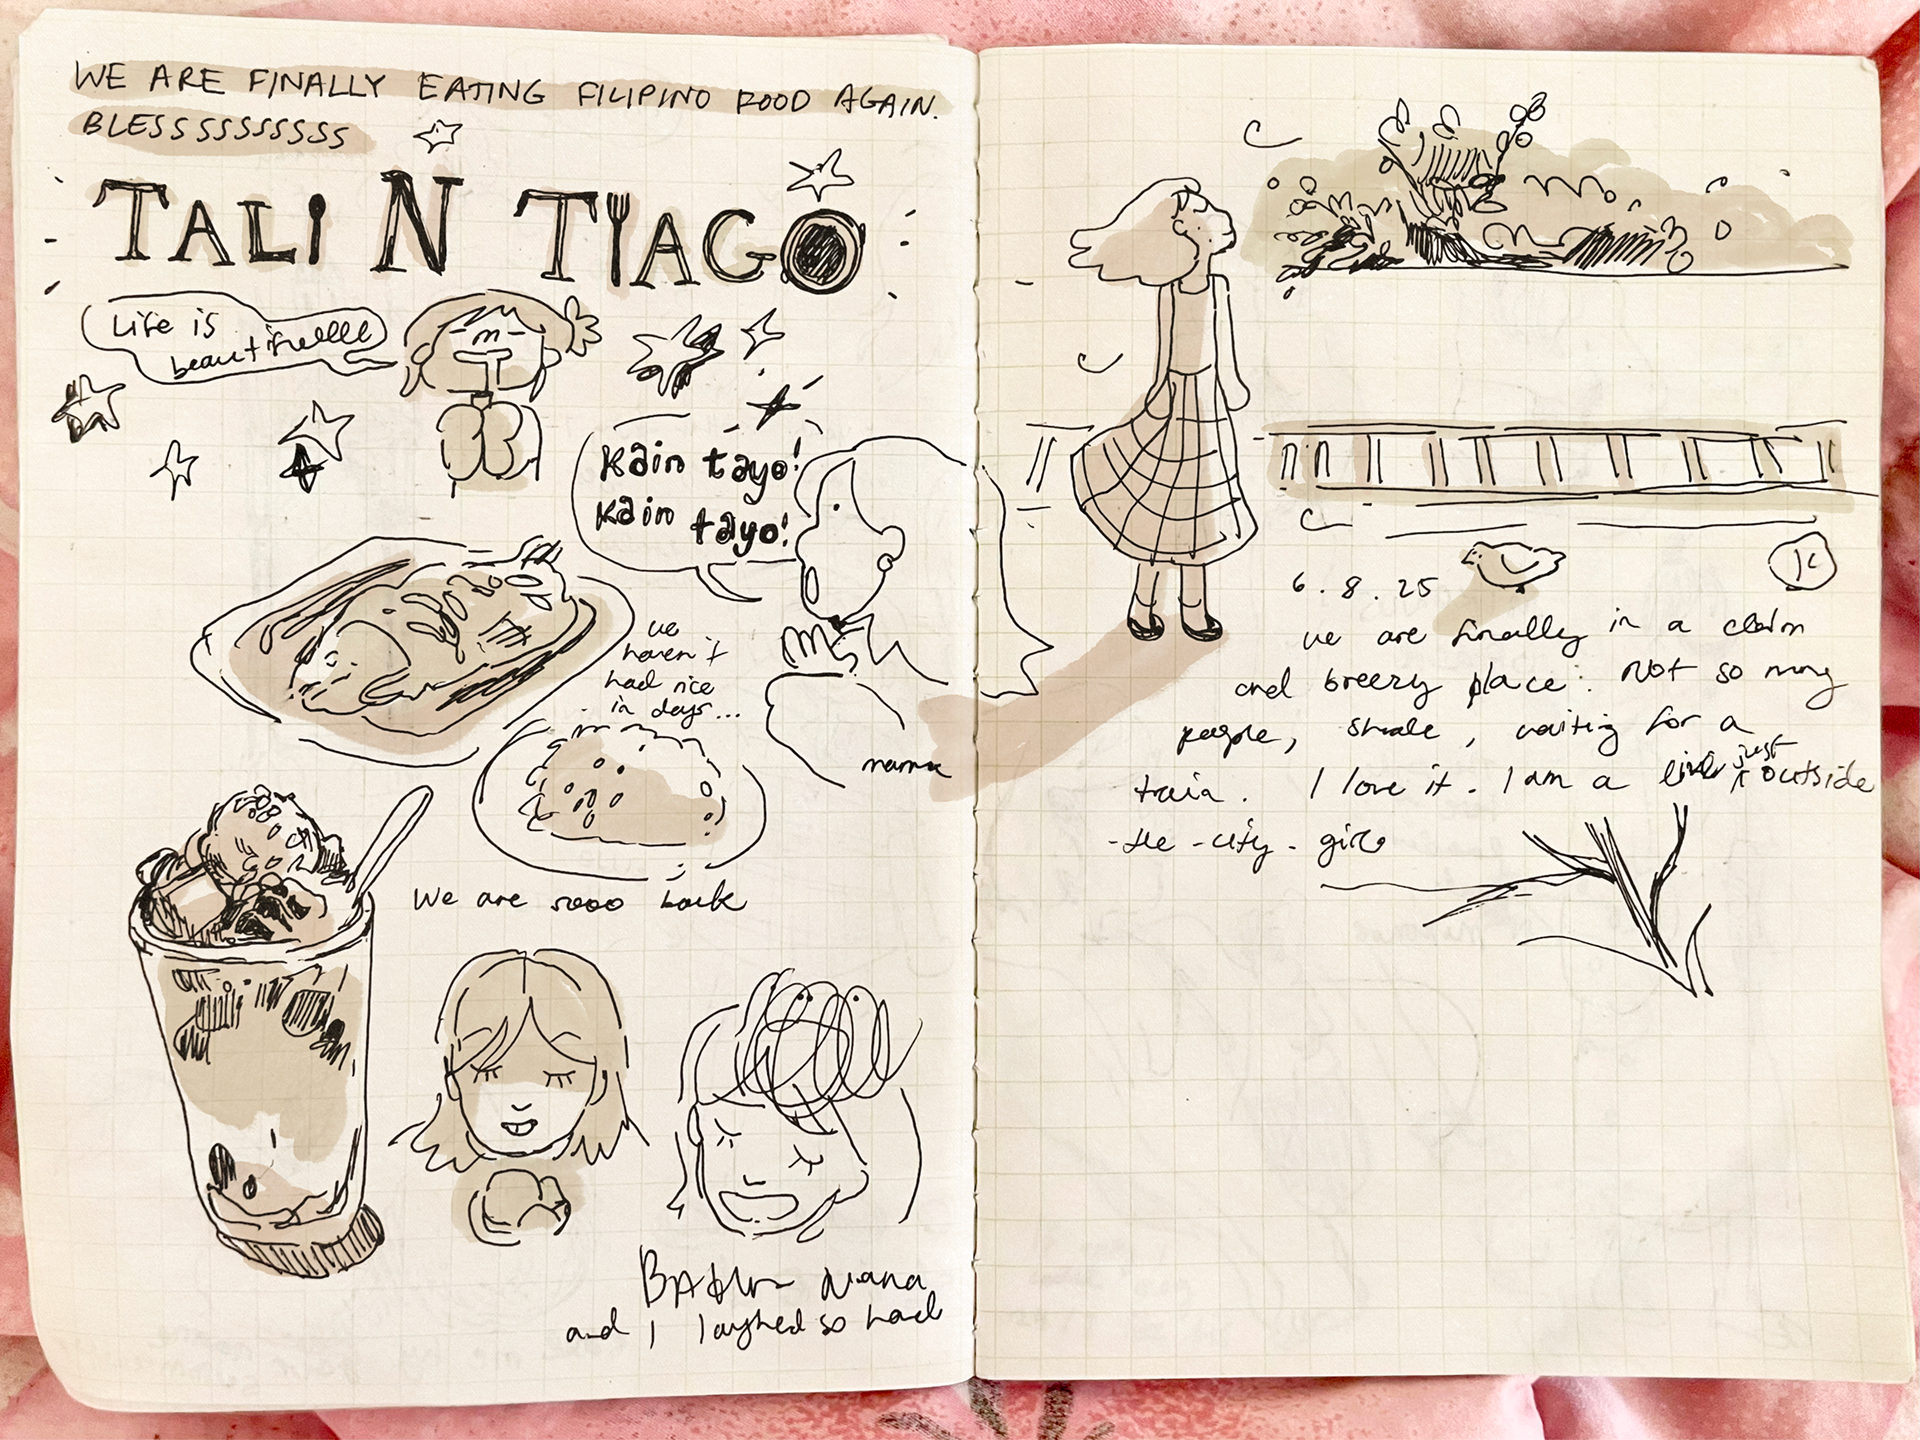 WE ARE FINALLY EATING FILIPINO FOOD AGAIN.
BLESSSSSSSSSS
TALI N TIAGO
Life is
beautifulllll
Kain tayo!
Kain
tayo!
we
haven't
had rice
in days...
mama
We are sooo back
nana
and I laughed so hard
6.8.25
we are finally in a calm
and breezy place. Not so many
people, shade, waiting for a
train. I love it. I am a live just outside
-the-city-girl